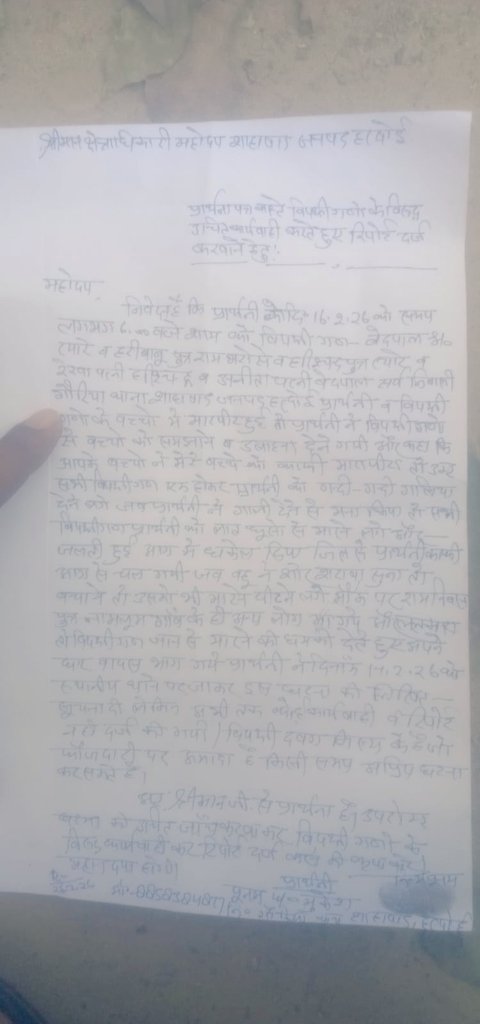 श्रीमान क्षेत्राधिकारी महोदय शाहाबाद जनपद हरदोई
प्रार्थना पत्र वास्ते विपक्षी गणों के विरुद्ध
उचित कार्यवाही करते हुए रिपोर्ट दर्ज
करवाने हेतु!
महोदय,
निवेदन है कि प्रार्थनी दि० 16.2.26 को समय
लगभग 6.00 बजे शाम को विपक्षी गण - वेदपाल
व पुत्र व पुत्र व
रेखा पत्नी व अनीता पत्नी वेदपाल सर्व निवासी
थाना शाहाबाद जनपद हरदोई प्रार्थनी व विपक्षी
गणों के बच्चों में मारपीट हुई तो प्रार्थनी ने विपक्षी गणों
के बच्चों को समझाने व उलाहना देने गयी और कहा कि
आपके बच्चों ने मेरे बच्चे को काफी मारापीटा तो इस
सभी विपक्षीगण एक होकर प्रार्थनी को गन्दी-गन्दी गालियां
देने लगे जब प्रार्थनी ने गाली देने से मना किया तो सभी
विपक्षीगण प्रार्थनी को लात घूसों से मारने लगे और
जलती हुई आग में धकेल दिया जिससे प्रार्थनी काफी
आग से जल गयी जब बहू ने शोर शराबा सुना तो
बचाने तो उसको भी मारने पीटने लगे मौके पर रामनिवास
पुत्र गाँव के ही अन्य लोग आ गये
तो विपक्षीगण जान से मारने की धमकी देते हुए अपने
घर वापस भाग गये प्रार्थनी ने दिनांक 17.2.26 को
स्थानीय थाने पर जाकर इस घटना की लिखित
सूचना दी लेकिन अभी तक कोई कार्यवाही व रिपोर्ट
नही दर्ज की गयी। विपक्षी दबंग किस्म के है जो
फौजदारी पर आमादा है किसी समय अप्रिय घटना
कर सकते है।
अतः श्रीमान जी से प्रार्थना है। उपरोक्त
घटना की उचित जाँच करवाकर विपक्षी गणों के
विरुद्ध कार्यवाही कर रिपोर्ट दर्ज करने की कृपा करें।
महान दया होगी।
प्रार्थनी
पूनम प० मुकेश
शाहाबाद, हरदोई